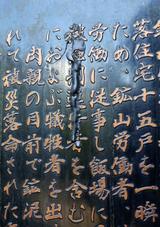 落住宅十五戸を一瞬
ため、鉱山労働者
労働に従事し飯場に
を含む
におよぶ犠牲者を出
肉親の目前で鉱泥
れて被災落命された